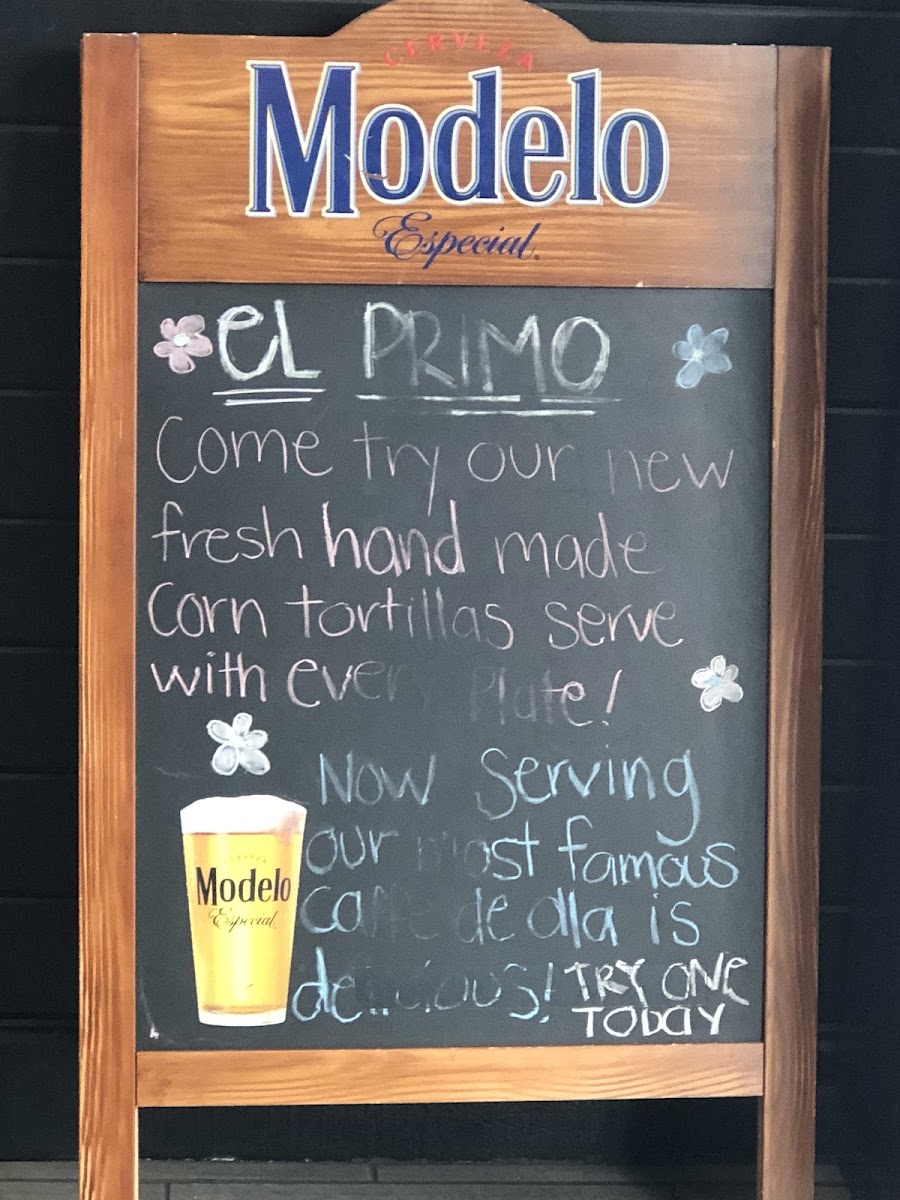 CERVEZA
Modelo
Especial
EL PRIMO
Come try our new
fresh hand made
corn tortillas serve
with every Plate!
Now Serving
our most famous
caffe de olla is
delicious! TRY ONE
TODAY
CERVEZA
Modelo
Especial